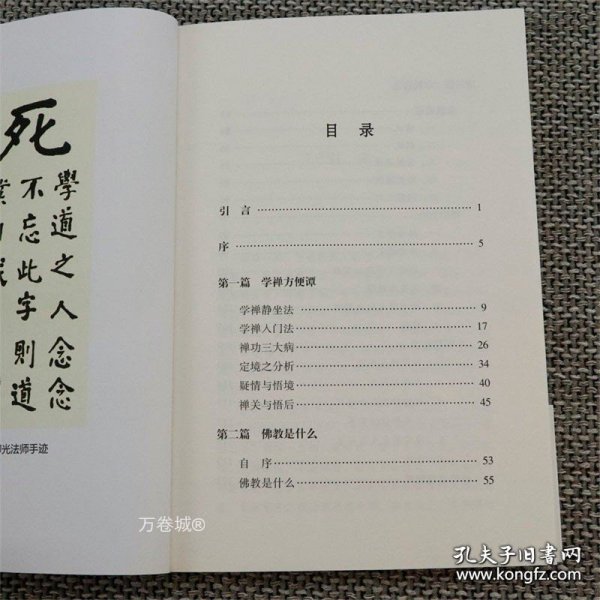 死
學道之人念念
不忘此字則道
業
光法师手迹
目 录
引 言 1
序 5
第一篇 学禅方便谭
学禅静坐法 9
学禅入门法 17
禅功三大病 26
定境之分析 34
疑情与悟境 40
禅关与悟后 45
第二篇 佛教是什么
自 序 53
佛教是什么 55
万卷城®
孔夫子旧书网
www.kongfz.com